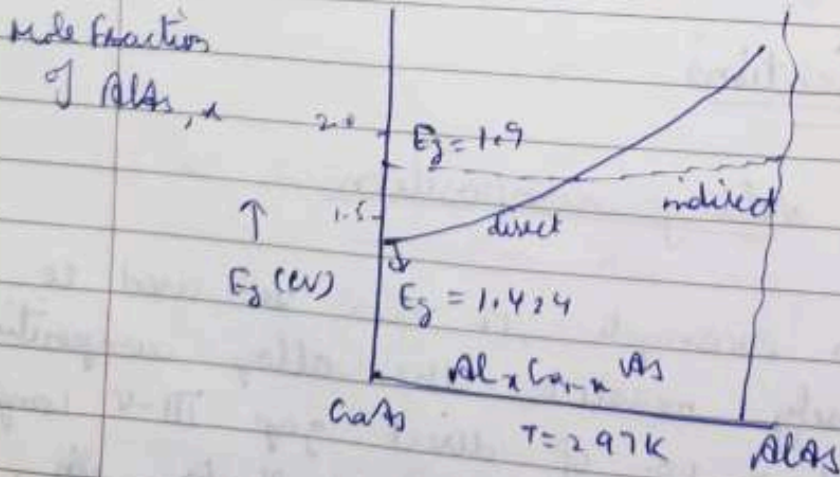 Mole fraction
of AlAs, x
2.0
Eg = 1.9
indirect
1.5
direct
↑
Eg (eV)
Eg = 1.424
AlxGa1-xAs
GaAs
T = 297K
AlAs